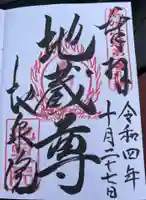 奉拝
令和四年
十月二十七日
地蔵尊
長泉院